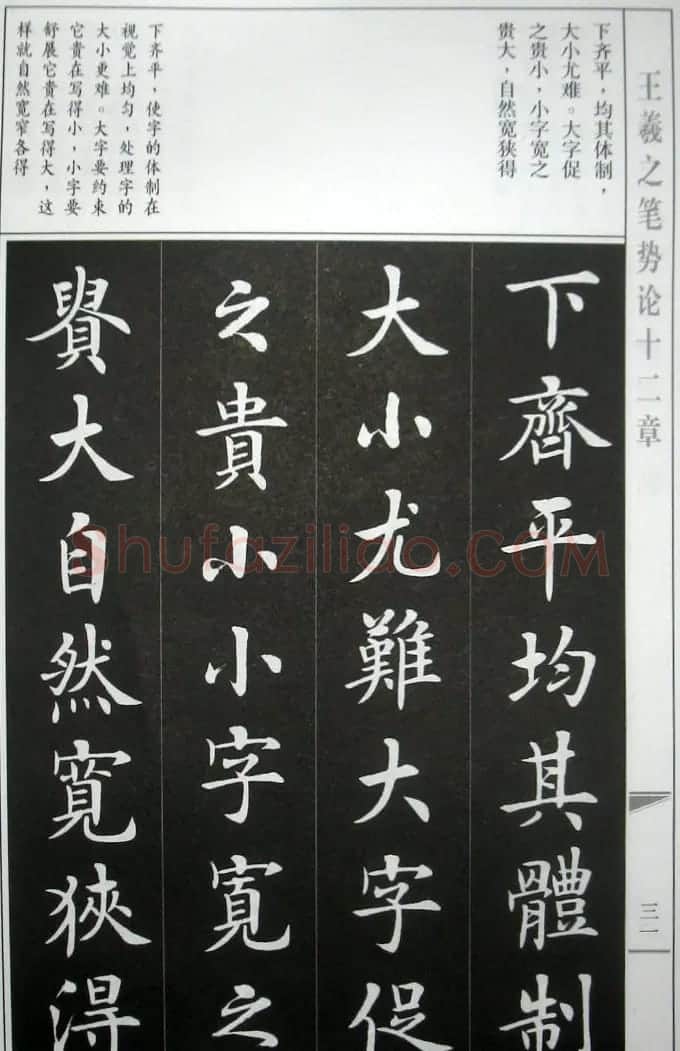 王羲之笔势论十二章
三一
下齐平，均其体制，
大小尤难。大字促
之贵小，小字宽之
贵大，自然宽狭得
下齐平，使字的体制在
视觉上均匀，处理字的
大小更难。大字要约束
它贵在写得小，小字要
舒展它贵在写得大，这
样就自然宽窄各得
下齊平均其體制
大小尤難大字促
之貴小小字寬之
貴大自然寬狹得
Shufaziliao.COM